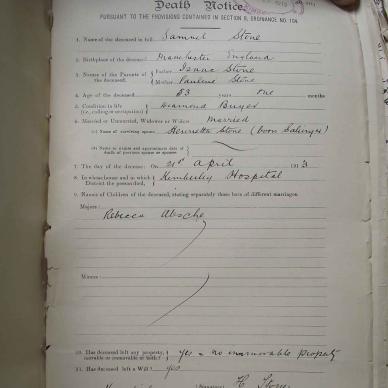 Death Notice.
PURSUANT TO THE PROVISIONS CONTAINED IN SECTION 9, ORDINANCE NO. 104
1. Name of the deceased in full Samuel Stone
2. Birthplace of the deceased Manchester England
3. Names of the Parents of the deceased. Father Isaac Stone
Mother Pauline Stone
4. Age of the deceased 53 years one months
5. Condition in life (i.e., calling or occupation) Diamond Buyer
6. Married or Unmarried, Widower or Widow Married
(a) Name of surviving spouse Henrietta Stone (born Salinger)
(b) Name or names and approximate date of death of previous spouse or spouses.
7. The day of the decease: On 21st April 1913
8. In whose house and in which District the person died, Kimberley Hospital
9. Names of Children of the deceased, stating separately those born of different marriages.
Majors
Rebecca
Minors
10. Has deceased left any property, movable or immovable or both? yes - no immovable property
11. Has deceased left a Will? yes
(Signature) H. Stone